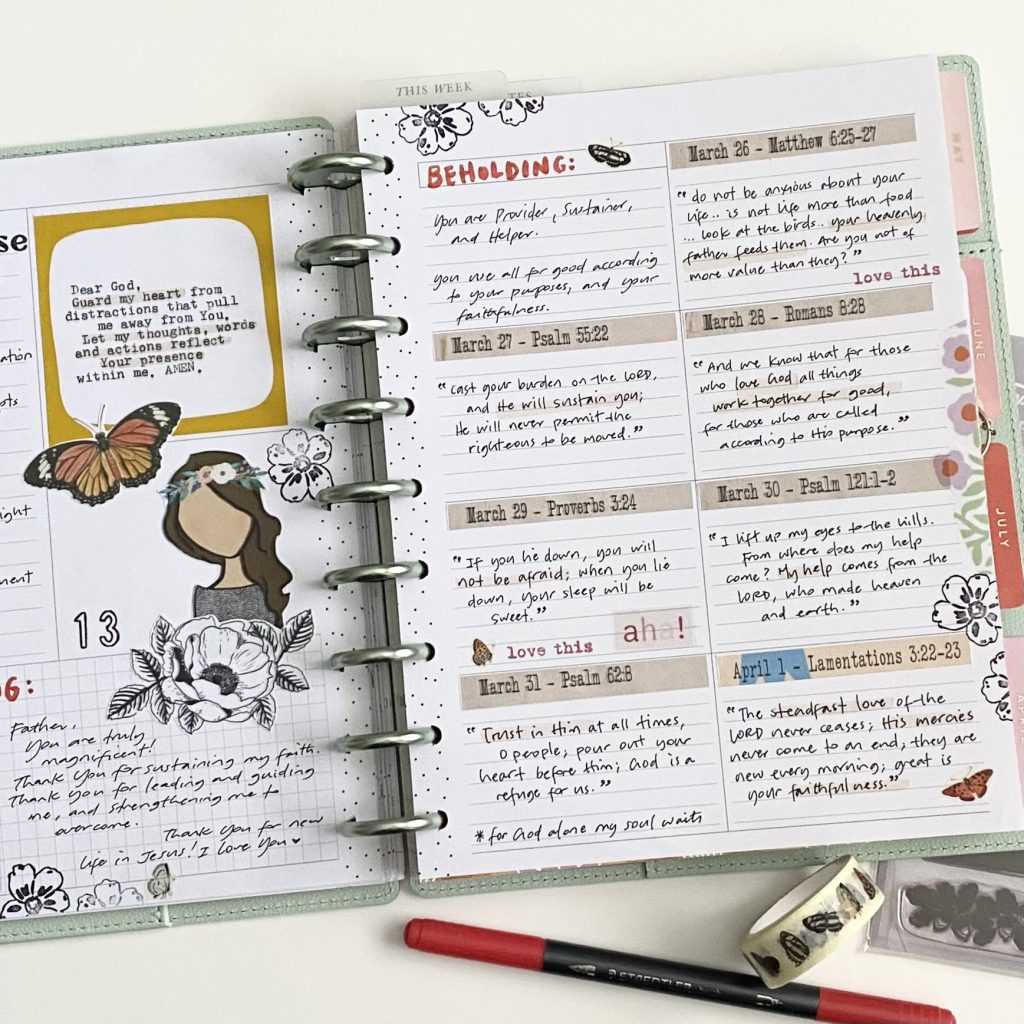 THIS WEEK
se
Dear God,
Guard my heart from
distractions that pull
me away from You.
Let my thoughts, words
and actions reflect
Your presence
within me. AMEN.
13
Father,
You are truly
magnificent!
Thank you for sustaining my faith.
Thank you for leading and guiding
me, and strengthening me to
overcome.
Thank you for new
life in Jesus! I love you ♥
BEHOLDING:
You are Provider, Sustainer,
and Helper.
you use all for good according
to your purposes, and your
faithfulness.
March 26 - Matthew 6:25-27
"do not be anxious about your
life.. is not life more than food
... look at the birds.. your heavenly
father feeds them. Are you not of
more value than they?"
love this
March 27 - Psalm 55:22
"Cast your burden on the LORD,
and He will sustain you;
He will never permit the
righteous to be moved."
March 28 - Romans 8:28
"And we know that for those
who love God all things
work together for good,
for those who are called
according to His purpose."
March 29 - Proverbs 3:24
"If you lie down, you will
not be afraid; when you lie
down, your sleep will be
sweet."
love this
aha!
March 30 - Psalm 121:1-2
"I lift up my eyes to the hills.
From where does my help
come? My help comes from the
LORD, who made heaven
and earth."
March 31 - Psalm 62:8
"Trust in Him at all times,
O people; pour out your
heart before Him; God is a
refuge for us."
*for God alone my soul waits
April 1 - Lamentations 3:22-23
"The steadfast love of the
LORD never ceases; His mercies
never come to an end; they are
new every morning; great is
your faithfulness."
MAY
JUNE
JULY
STAEDTLER